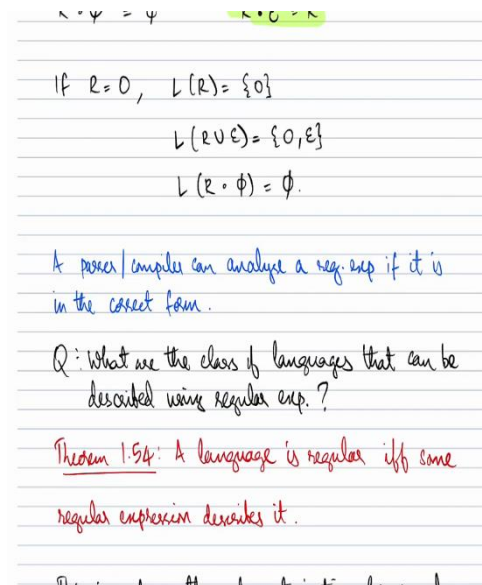 R∘ϕ = ϕ R∘ε = R
If R = 0, L(R) = {0}
L(R∪ε) = {0,ε}
L(R∘ϕ) = ϕ.
A parser/compiler can analyse a reg. exp if it is
in the correct form.
Q: What are the class of languages that can be
described using regular exp.?
Theorem 1.54: A language is regular iff some
regular expression describes it.